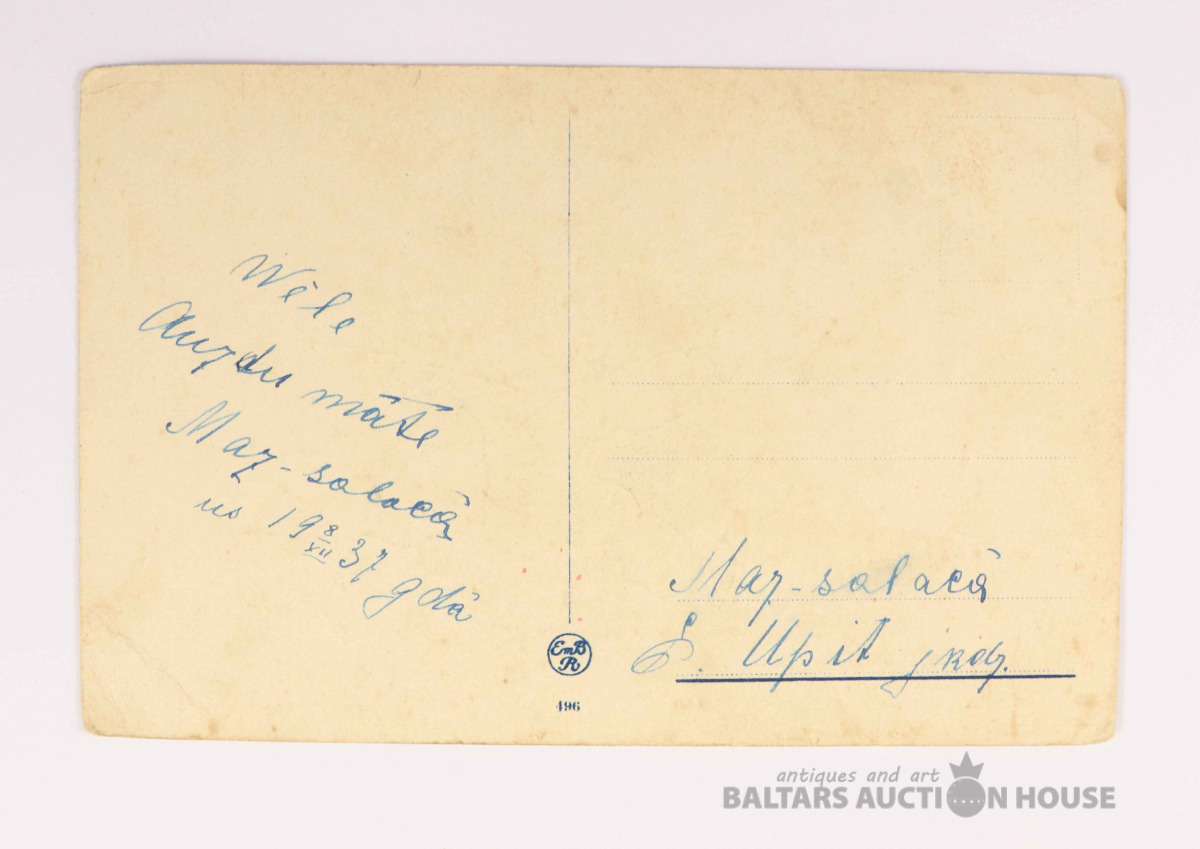 Wēle
Auzdu māte
Maz-salacā
us 19 8/XII 37 gdā
Maz-salacā
E. Upit jkdz.
EmB
R
496
antiques and art
BALTARS AUCTION HOUSE